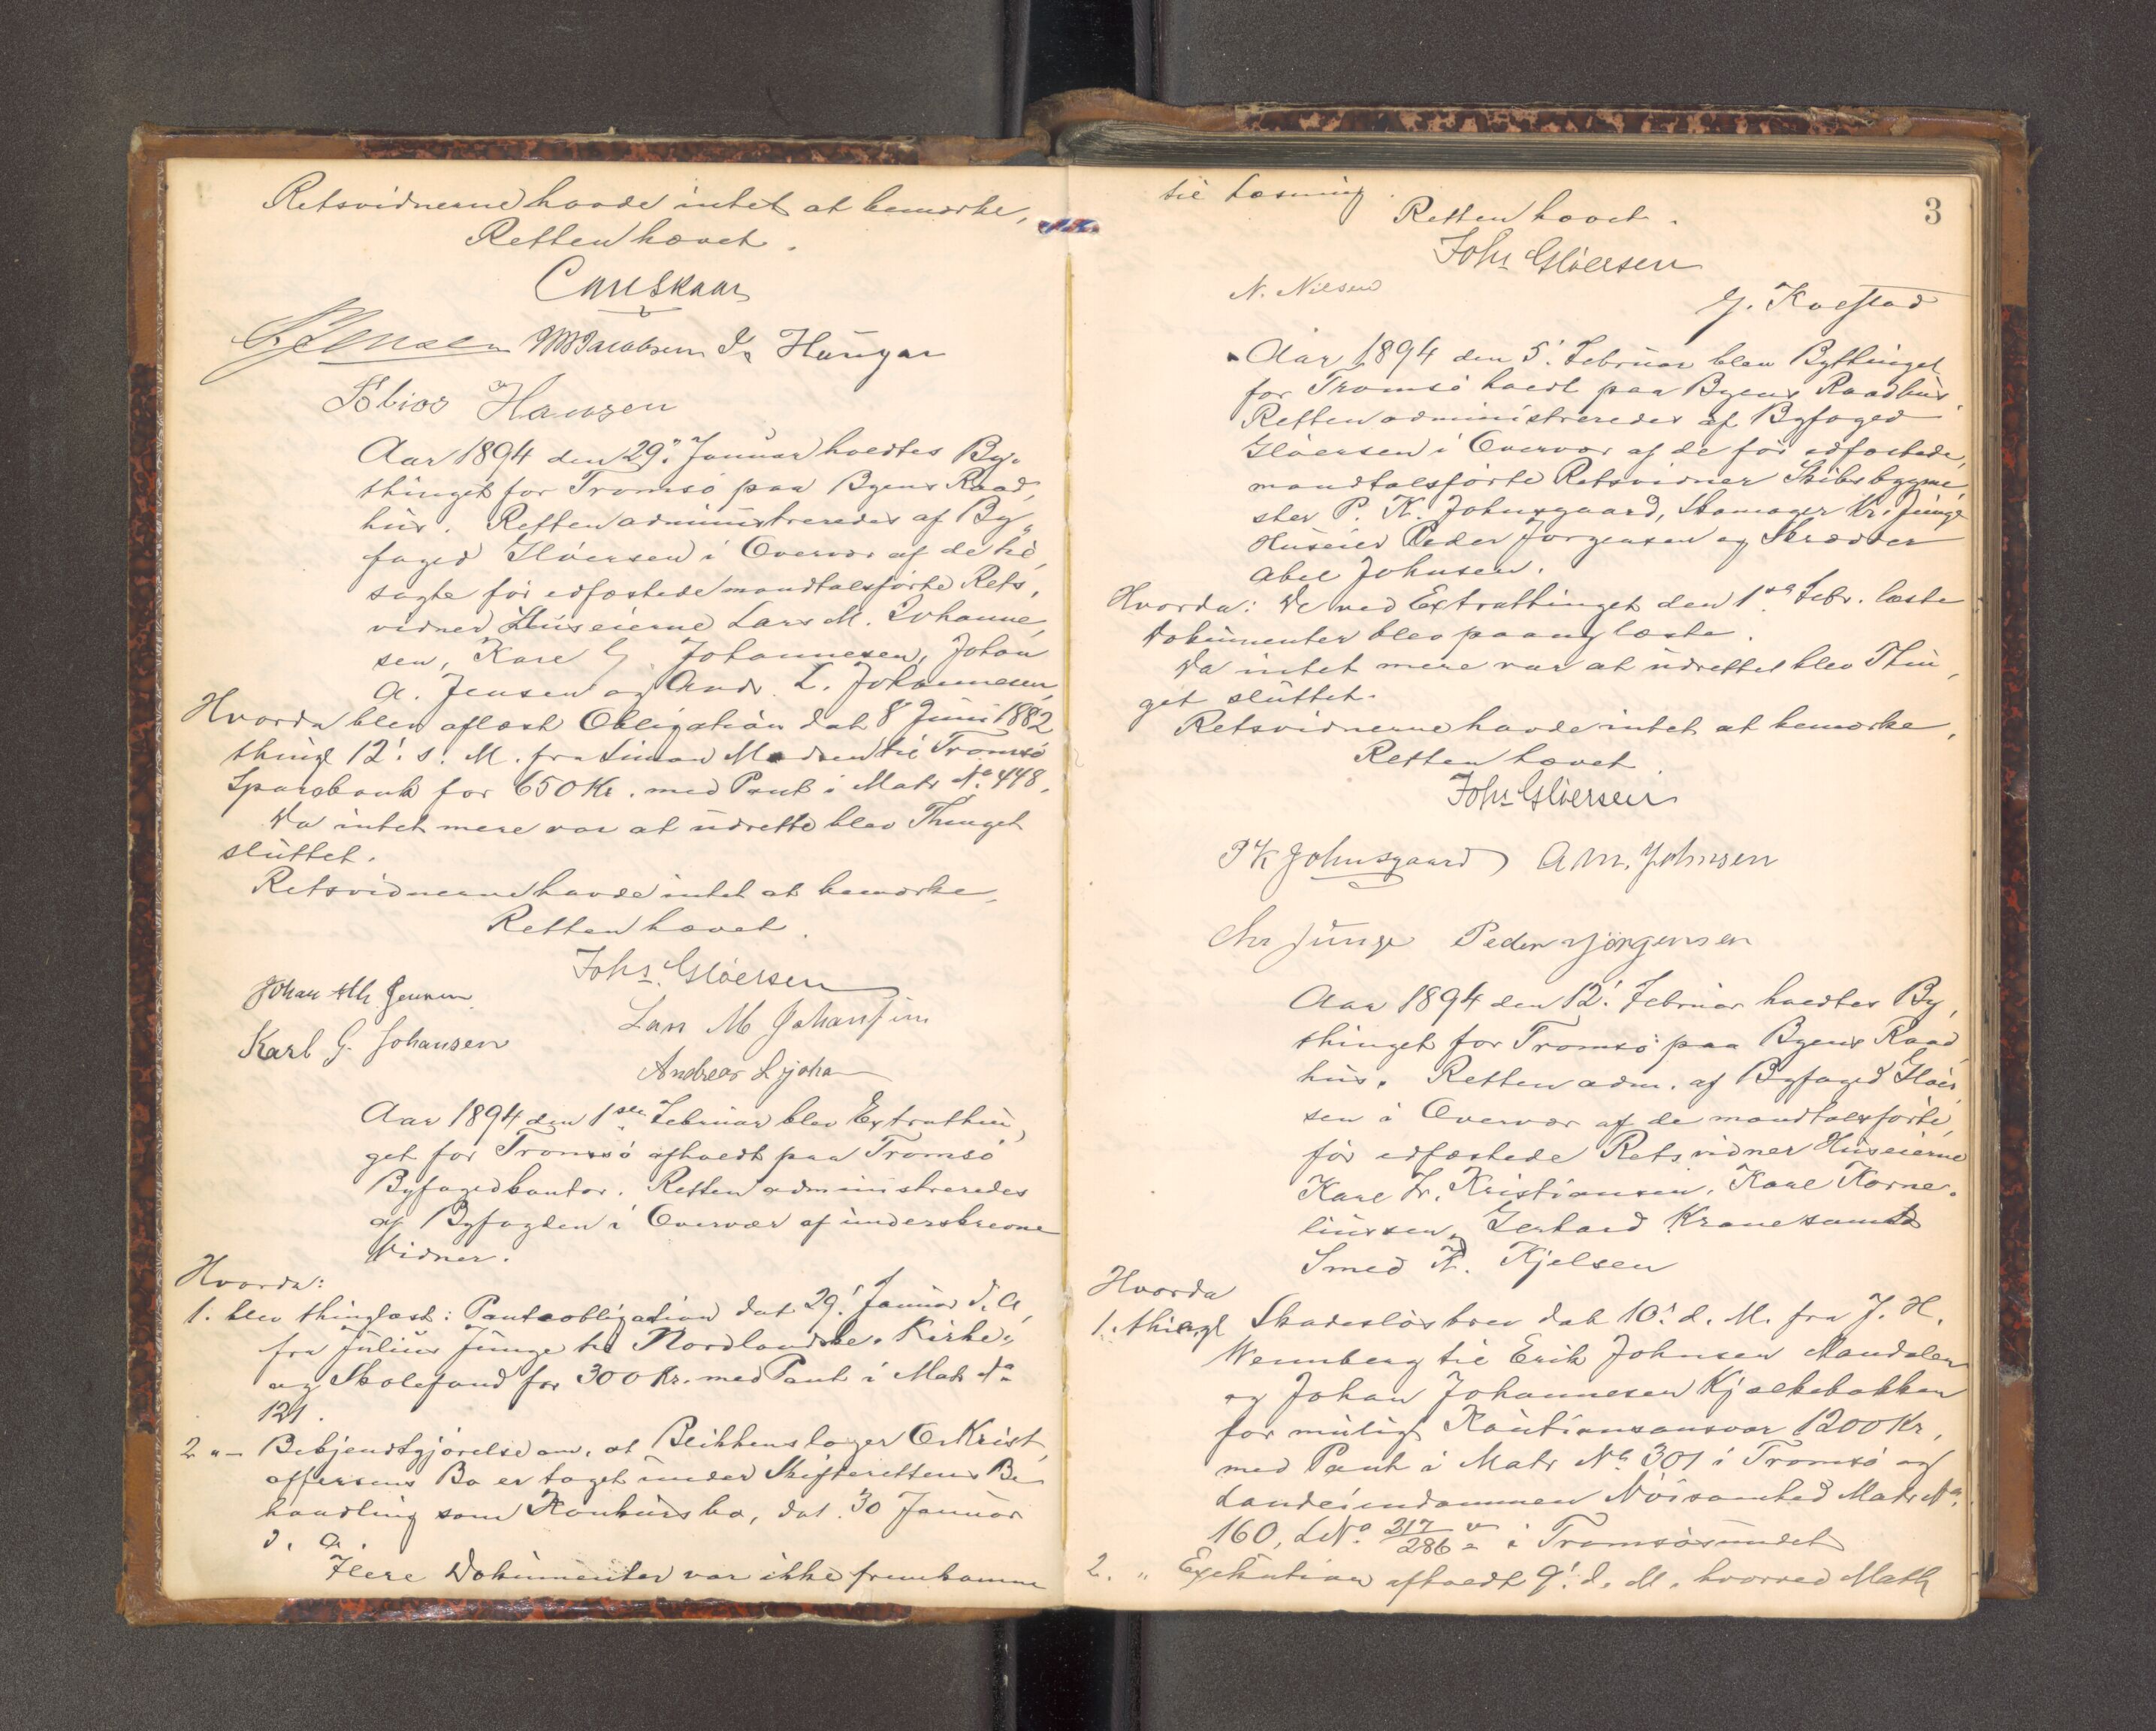 Retsvidnerne havde intet at bemærke,
Retten hævet.
M Jacobsen Hungar
Tobias Hansen
Aar 1894 den 29. Januar holdtes By-
thinget for Tromsø paa Byens Raad,
hus. Retten administreredes af By,
foged Gløersen i Overvær af de til,
sagte før edfæstede mandtalsførte Rets,
vidner Huseierne Lars M. Johanne,
sen, Karl G. Johannesen, Johan
A. Jensen og Andr. L. Johannesen,
Hvorda blev aflæst Obligation dat 8 Juni 1882
thingl 12. s. M. fra Simon Madsen til Tromsø
Sparebank for 650 Kr. med Pant i Matr No. 448.
Da intet mere var at udrette blev Thinget
sluttet.
Retsvidnerne havde intet at bemærke,
Retten hævet.
Johs Gløersen
Johan Ath Jensen
Lars M Johansen
Karl G. Johansen
Andreas L Joha
Aar 1894 den 1ste Februar blev Extrathin,
get for Tromsø afholdt paa Tromsø
Byfogedkontor. Retten administreredes
af Byfogden i Overvær af underskrevne
Vidner.
Hvorda:
1. blev thinglæst: Panteobligation dat 29. Januar d. A,
fra Julius Junge til Nordlandske Kirke-
og Skolefond for 300 Kr. med Pant i Matr No
121.
2 " - Bekjendtgjørelse om, at Blikkenslager O. Krist,
offersens Bo er taget under Skifterettens Be
handling som Konkursbo, dat. 30 Januar
d. A.
Flere Dokumenter var ikke fremkomne
3
til Læsning.
Retten hævet.
Johs Gløersen
N. Nilsen
J. Kolstad
Aar 1894 den 5. Februar blev Bythinget
for Tromsø holdt paa Byens Raadhus.
Retten administreredes af Byfoged
Gløersen i Overvær af de før edfæstede,
mandtalsførte Retsvidner Skibsbygme,
ster P. K. Johnsgaard, Skomager Chr. Junge
Huseier Peder Jørgensen og Skrædder
Abel Johnsen.
Hvorda: De ved Extrathinget den 1ste Febr. læste
Dokumenter blev paany læste.
Da intet mere var at udrettet blev Thin,
get sluttet.
Retsvidnerne havde intet at bemærke,
Retten hævet.
Johs Gløersen
P K Johnsgaard A M. Johnsen
Chr Junge Peder Jørgensen
Aar 1894 den 12. Februar holdtes By,
thinget for Tromsø paa Byens Raad,
hus. Retten adm. af Byfoged Gløer,
sen i Overvær af de mandtalsførte,
før edfæstede Retsvidner Huseierne
Karl Fr. Kristiansen, Karl Korne-
liussen, Gerhard Krane samt
Smed K. Kjelsen
Hvorda
1. thingl Skadesløsbrev dat 10. d. M. fra J. H.
Wennberg til Erik Johnsen Mandalen
og Johan Johannesen Kjælkebakken
for muligt Kautionsansvar 1200 Kr,
med Pant i Matr No 301 i Tromsø og
Landeiendommen Matr No.
160, LNo. 217/286 i Tromsøsundet
2. " Exekution afholdt 9. d. M. hvorved Matr